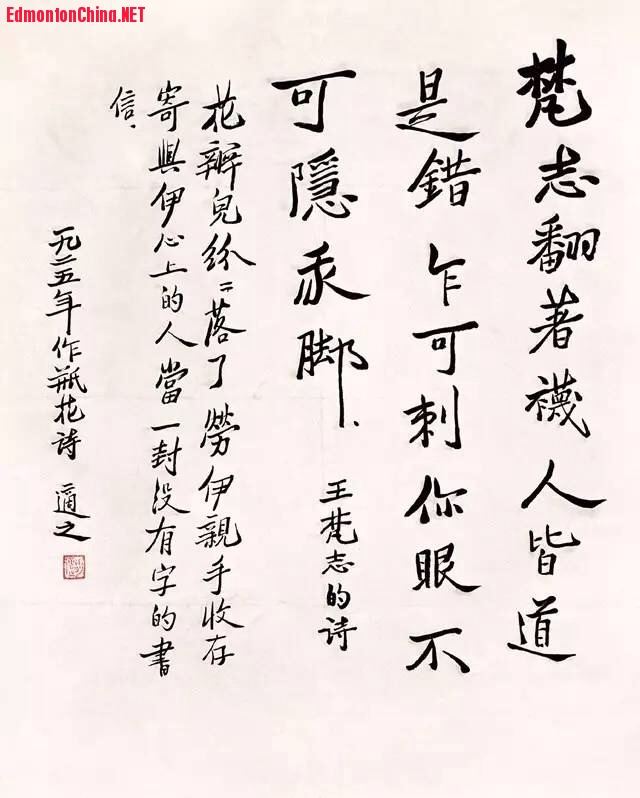 EdmontonChina.NET
梵志翻著襪人皆道
是錯乍可刺你眼不
可隱我脚、
王梵志的詩
花瓣兒紛〻落了勞伊親手收存
寄與伊心上的人當一封没有字的書
信、
一九二五年作瓶花詩 適之